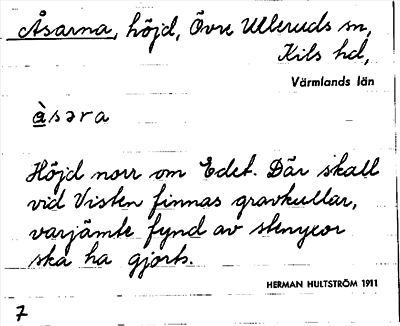 Åsarna, höjd, Övre Ulleruds sn,
Kils hd,
Värmlands län
àsəra
Höjd norr om Edet. Där skall
vid Visten finnas gravkullar,
varjämte fynd av stenyxor
ska ha gjorts.
HERMAN HULTSTRÖM 1911
7